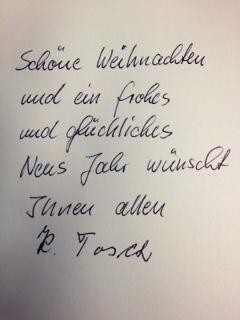 Schöne Weihnachten
und ein frohes
und glückliches
Neues Jahr wünscht
Ihnen allen
K. Tosch